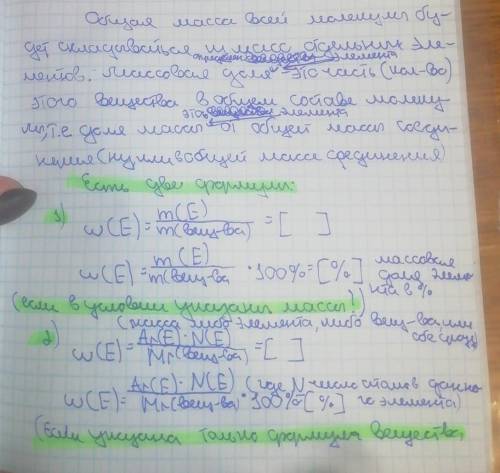 Общая масса всей молекулы бу-
дет складываться из масс отдельных эле-
определен. элемента
ментов. Массовая доля это часть (кол-во)
этого вещества в общем составе молеку-
этого элемента
лы, т.е. доля массы от общей массы соеди-
нения (ну или в общей массе соединения)
Есть две формулы:
1) w(E) = m(E) / m(вещ-ва) = [ ]
w(E) = m(E) / m(вещ-ва · 100% = [%] массовая доля элеме-нта в %
(если в условии указаны массы!)
(масса либо элемента, либо вещ-ва, или обе сразу)
2) w(E) = Ar(E) · N(E) / Mr(вещ-ва) = [ ]
w(E) = Ar(E) · N(E) / Mr(вещ-ва) · 100% = [%] (где N - число атомов данно-го элемента)
(Если указана только формула вещества